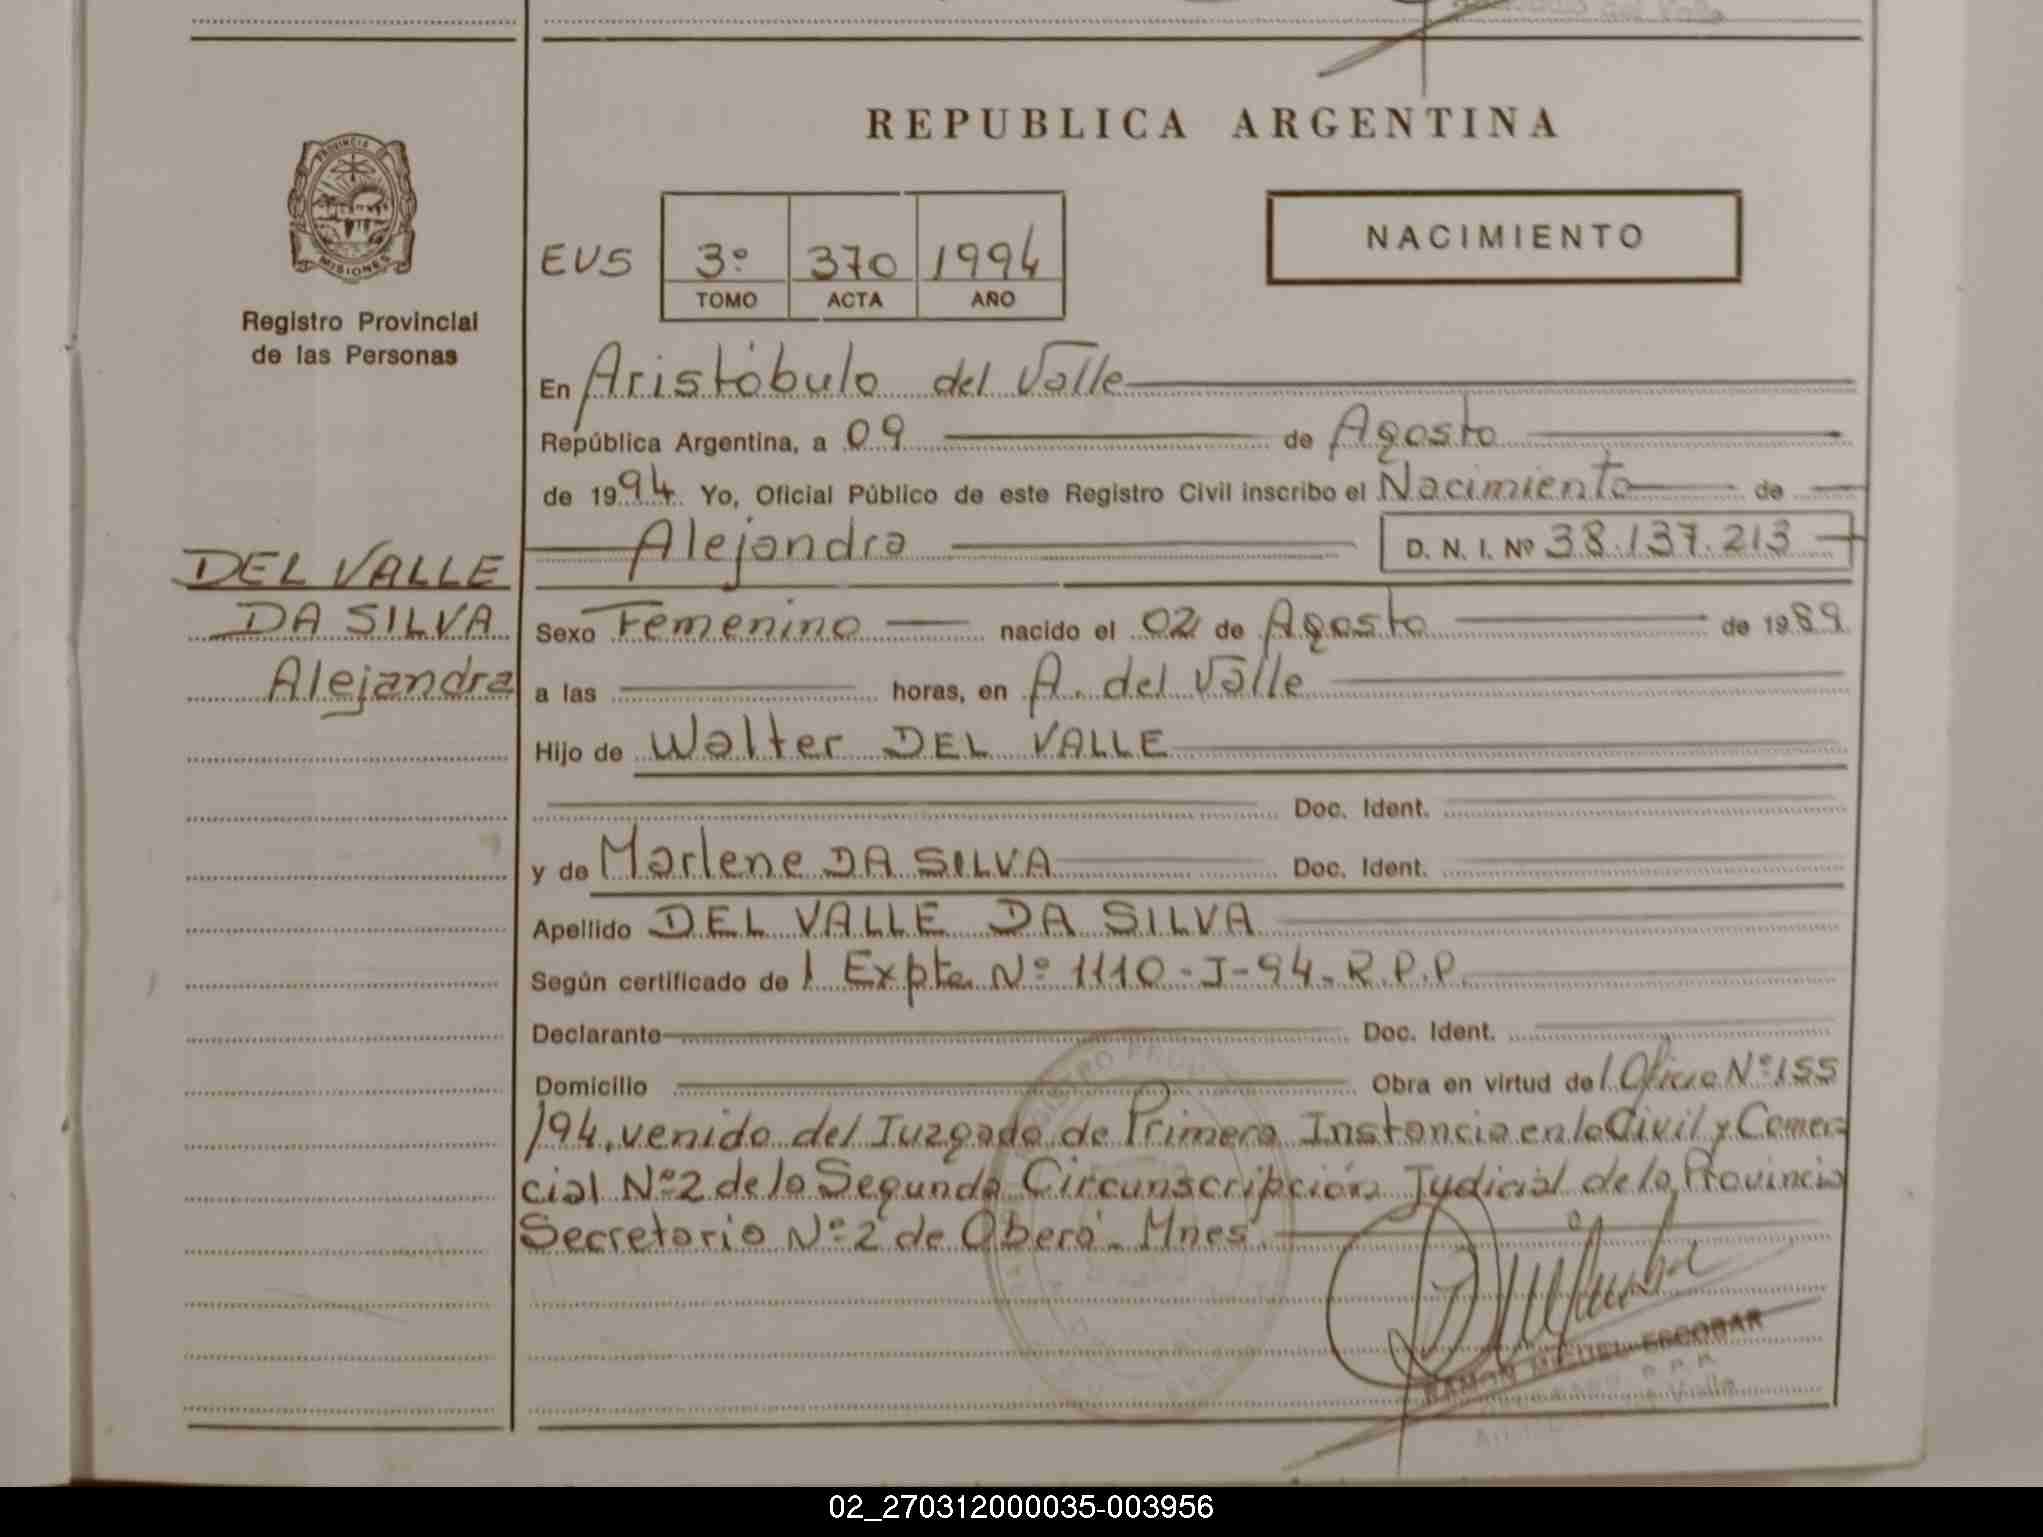 REPUBLICA ARGENTINA
PROVINCIA DE
MISIONES
Registro Provincial
de las Personas
NACIMIENTO
EUS 3º 370 1994
TOMO ACTA AÑO
En Aristóbulo del Valle
República Argentina, a 09 de Agosto
de 1994. Yo, Oficial Público de este Registro Civil inscribo el Nacimiento de
Alejandra D. N. I. Nº 38.137.213
DEL VALLE
DA SILVA
Alejandra
Sexo Femenino nacido el 02 de Agosto de 1989
a las horas, en A. del Valle
Hijo de Walter DEL VALLE
Doc. Ident.
y de Marlene DA SILVA Doc. Ident.
Apellido DEL VALLE DA SILVA
Según certificado de l Expte. Nº 1110-J-94-R.P.P.
Declarante Doc. Ident.
Domicilio Obra en virtud de l Oficio Nº 155
/94, venido del Juzgado de Primera Instancia en lo Civil y Comer=
cial Nº 2 de la Segunda Circunscripción Judicial de la Provincia
Secretario Nº 2 de Oberá - Mnes.
RAMON MIGUEL ESCOBAR
02_270312000035-003956